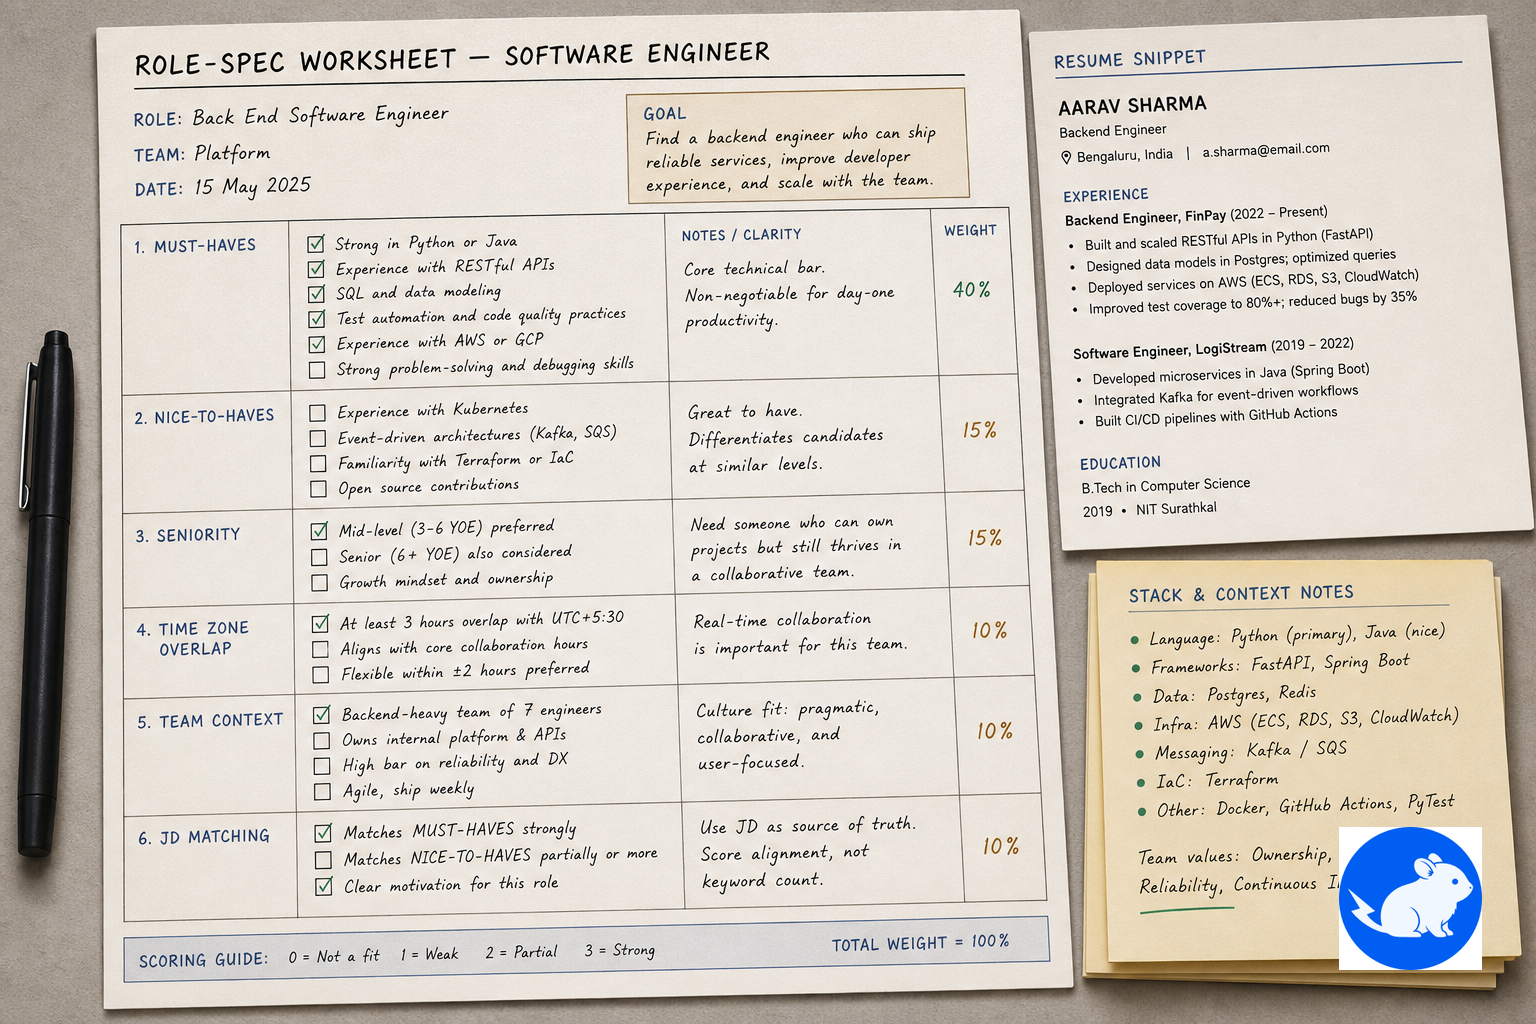 ROLE-SPEC WORKSHEET — SOFTWARE ENGINEER
ROLE: Back End Software Engineer
TEAM: Platform
DATE: 15 May 2025
GOAL
Find a backend engineer who can ship
reliable services, improve developer
experience, and scale with the team.
1. MUST-HAVES
Strong in Python or Java
Experience with RESTful APIs
SQL and data modeling
Test automation and code quality practices
Experience with AWS or GCP
Strong problem-solving and debugging skills
NOTES / CLARITY
Core technical bar.
Non-negotiable for day-one
productivity.
WEIGHT
40%
2. NICE-TO-HAVES
Experience with Kubernetes
Event-driven architectures (Kafka, SQS)
Familiarity with Terraform or IaC
Open source contributions
Great to have.
Differentiates candidates
at similar levels.
15%
3. SENIORITY
Mid-level (3-6 YOE) preferred
Senior (6+ YOE) also considered
Growth mindset and ownership
Need someone who can own
projects but still thrives in
a collaborative team.
15%
4. TIME ZONE
OVERLAP
At least 3 hours overlap with UTC+5:30
Aligns with core collaboration hours
Flexible within ±2 hours preferred
Real-time collaboration
is important for this team.
10%
5. TEAM CONTEXT
Backend-heavy team of 7 engineers
Owns internal platform & APIs
High bar on reliability and DX
Agile, ship weekly
Culture fit: pragmatic,
collaborative, and
user-focused.
10%
6. JD MATCHING
Matches MUST-HAVES strongly
Matches NICE-TO-HAVES partially or more
Clear motivation for this role
Use JD as source of truth.
Score alignment, not
keyword count.
10%
SCORING GUIDE: 0 = Not a fit 1 = Weak 2 = Partial 3 = Strong
TOTAL WEIGHT = 100%
RESUME SNIPPET
AARAV SHARMA
Backend Engineer
Bengaluru, India | a.sharma@email.com
EXPERIENCE
Backend Engineer, FinPay (2022 – Present)
• Built and scaled RESTful APIs in Python (FastAPI)
• Designed data models in Postgres; optimized queries
• Deployed services on AWS (ECS, RDS, S3, CloudWatch)
• Improved test coverage to 80%+; reduced bugs by 35%
Software Engineer, LogiStream (2019 – 2022)
• Developed microservices in Java (Spring Boot)
• Integrated Kafka for event-driven workflows
• Built CI/CD pipelines with GitHub Actions
EDUCATION
B.Tech in Computer Science
2019 • NIT Surathkal
STACK & CONTEXT NOTES
• Language: Python (primary), Java (nice)
• Frameworks: FastAPI, Spring Boot
• Data: Postgres, Redis
• Infra: AWS (ECS, RDS, S3, CloudWatch)
• Messaging: Kafka / SQS
• IaC: Terraform
• Other: Docker, GitHub Actions, PyTest
Team values: Ownership,
Reliability, Continuous